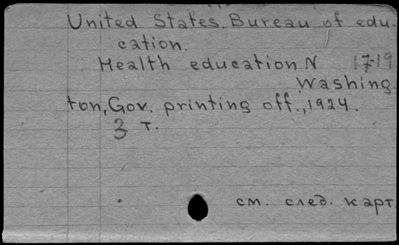 United States. Bureau of edu-
cation.
Health education N 17-19
Washing-
ton, Gov. printing off., 1924.
3 т.
см. след. карт